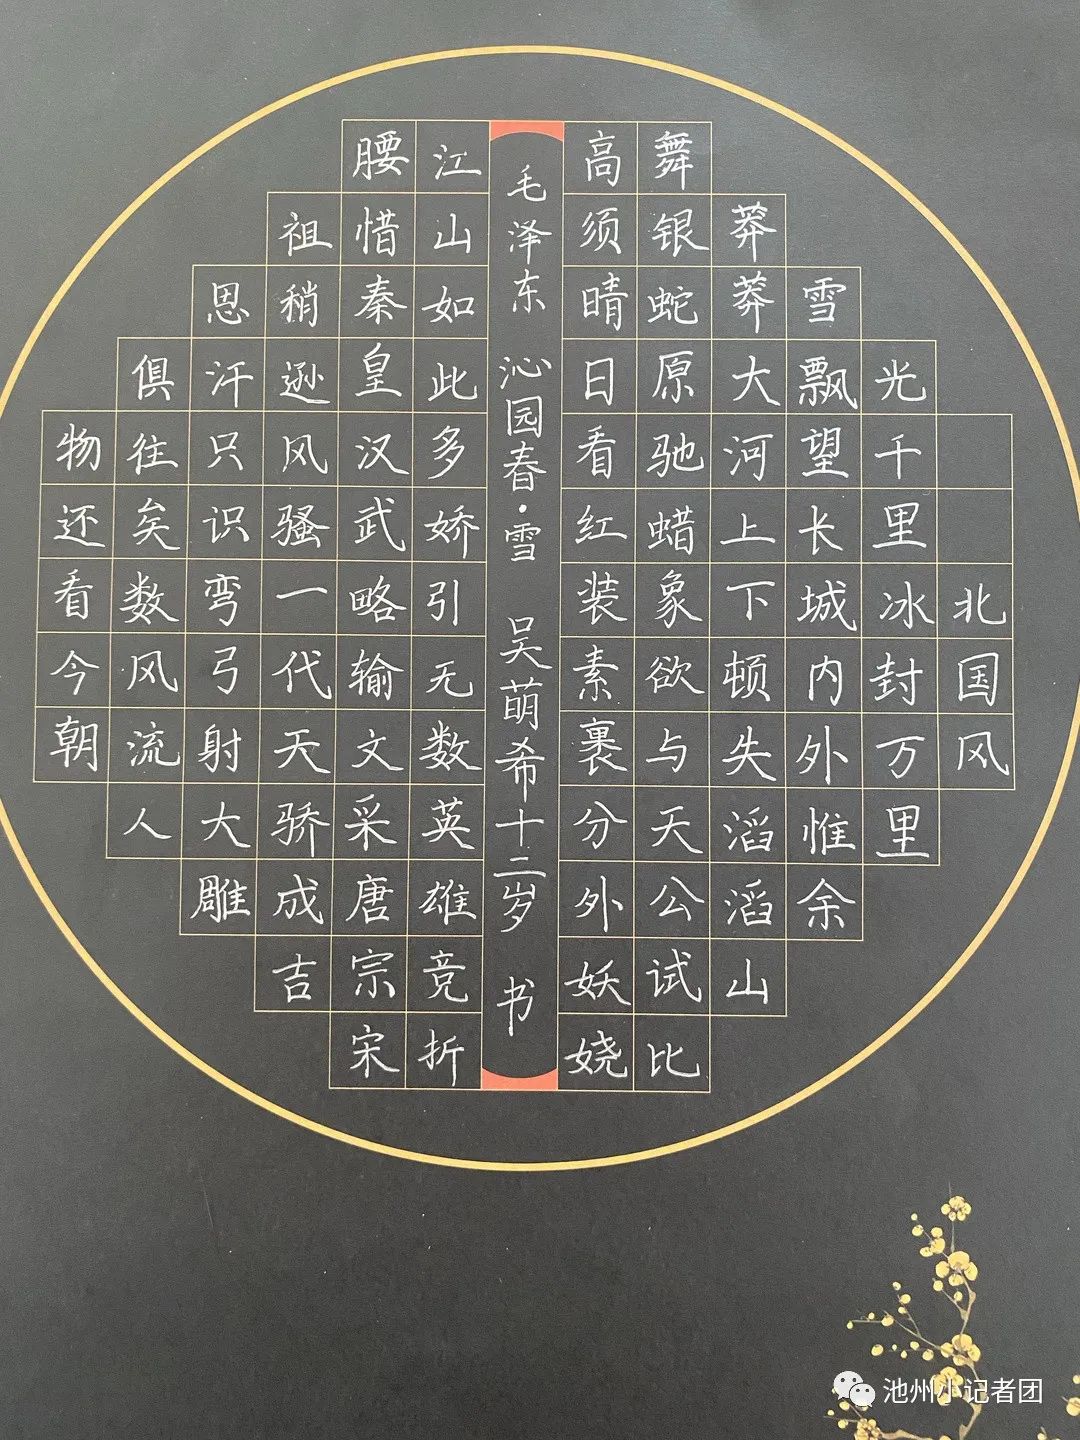 北国风
光千里冰封万里
雪飘望长城内外惟余
莽莽大河上下顿失滔滔山
舞银蛇原驰蜡象欲与天公试比
高须晴日看红装素裹分外妖娆
毛泽东 沁园春·雪 吴萌希十二岁 书
江山如此多娇引无数英雄竞折
腰惜秦皇汉武略输文采唐宗宋
祖稍逊风骚一代天骄成吉
恩汗只识弯弓射大雕
俱往矣数风流人
物还看今朝
池州小记者团